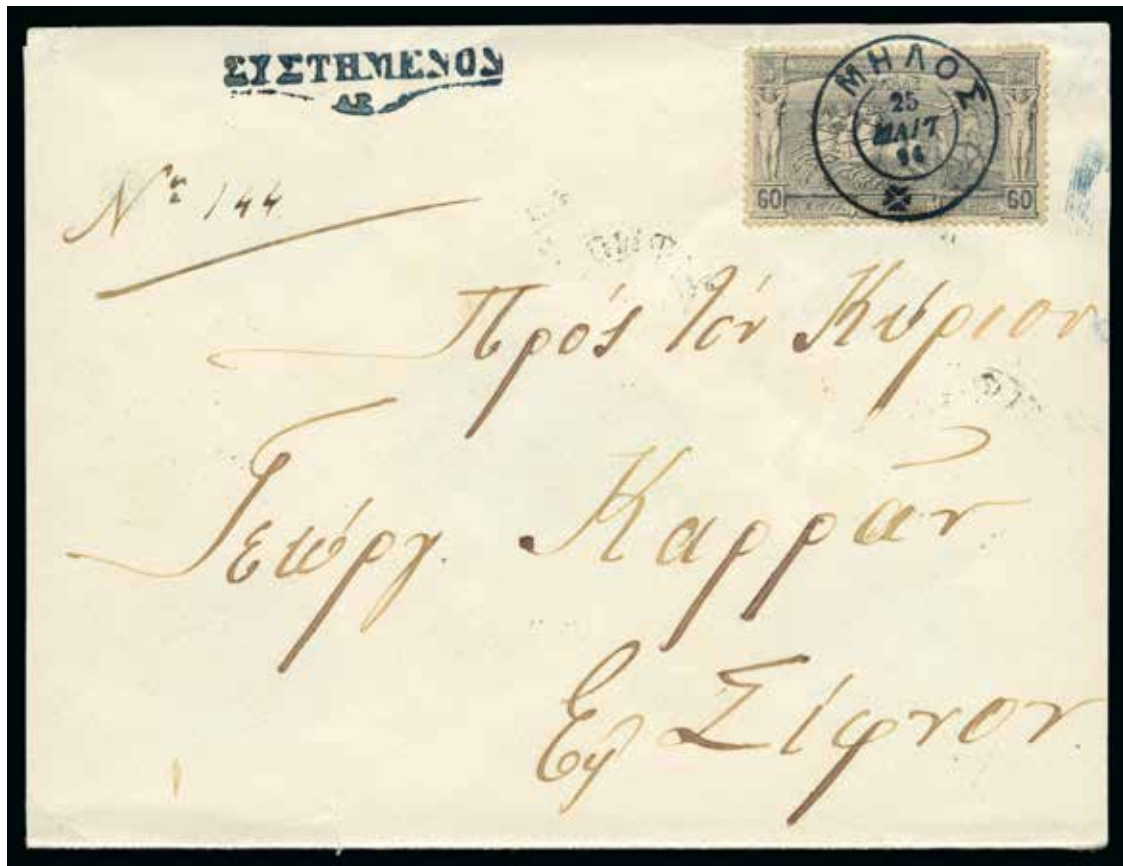 ΣΥΣΤΗΜΕΝΟΝ
ΜΗΛΟΣ
25
ΜΑΪ
60 60
Νο 144
Πρός τόν Κύριον
Γεώργ. Καρρᾶν
Εἰς Σίφνον.